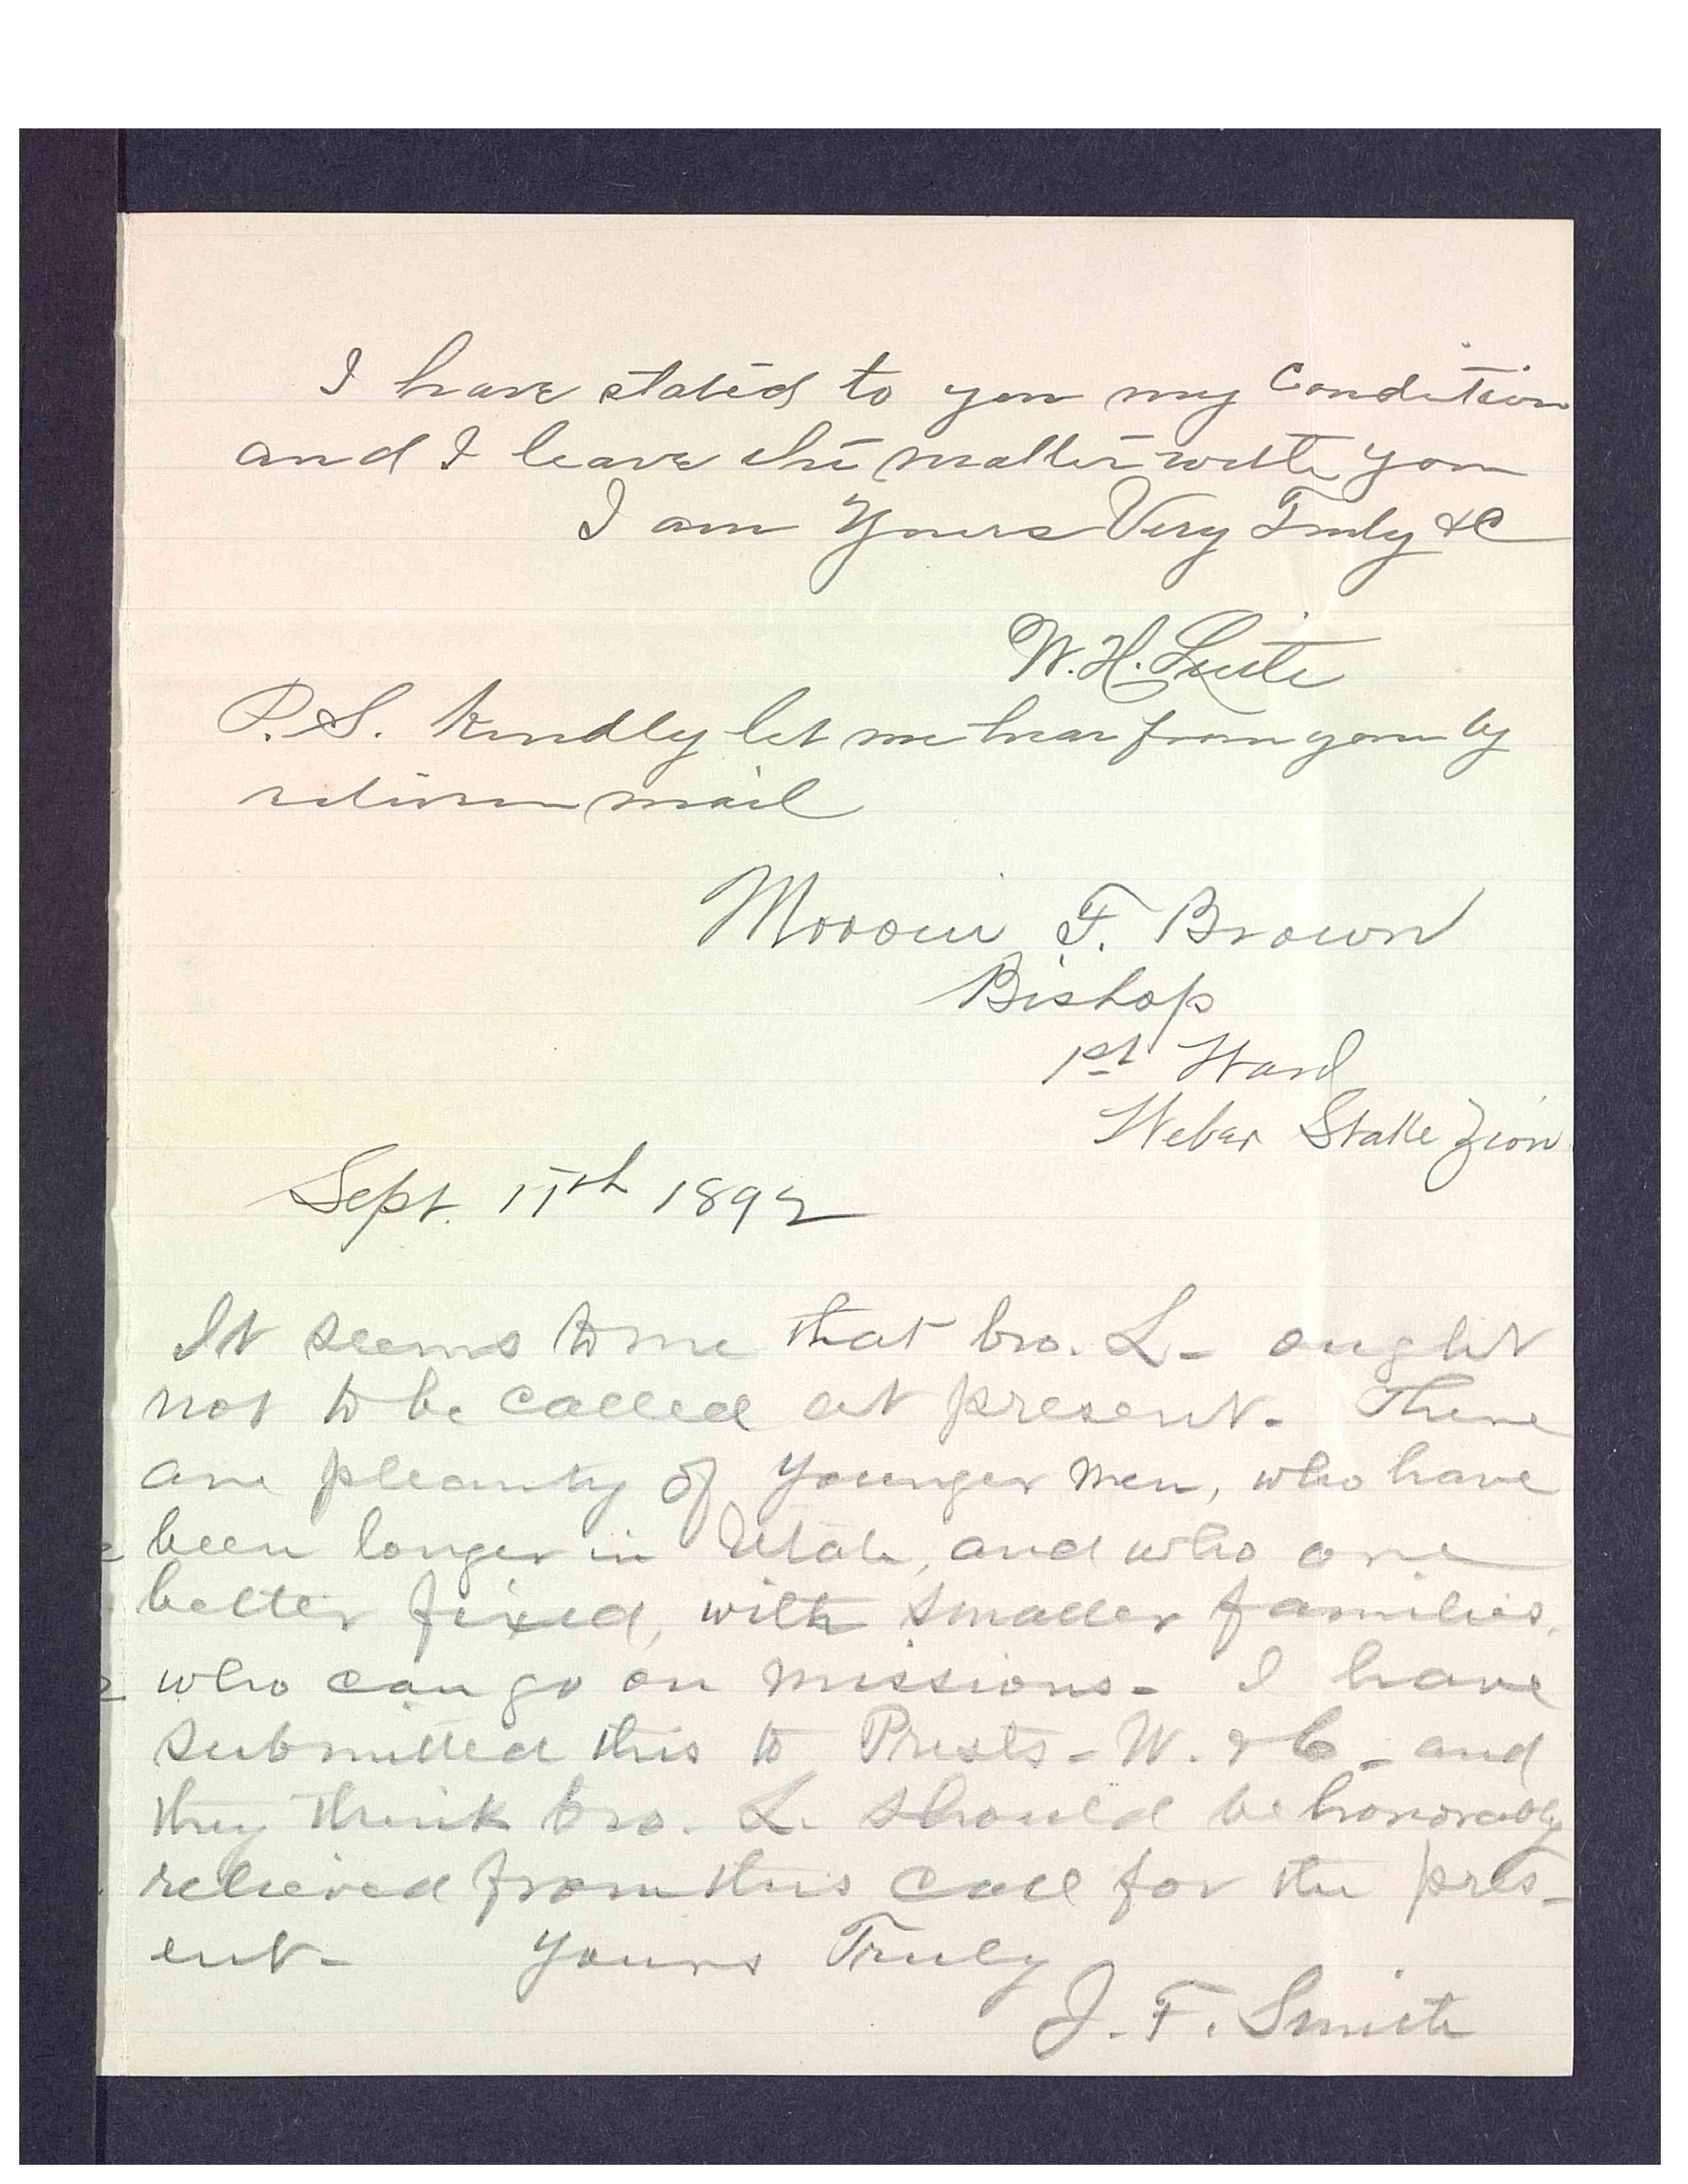 I have stated to you my Condition
and I leave the matter with you
I am Yours Very Truly &C
W. H.
P.S. Kindly let me hear from you by
return mail
Moroni F. Brown
Bishop
1st Ward
Weber Stake Zion
Sept. 15th 1892
It seems to me that bro. L- ought
not to be called at present- There
are pleanty of younger men, who have
been longer in Utah, and who are
better fixed, with smaller families,
who can go on missions- I have
submitted this to Prests- W. & C- and
they think bro. L. should be honorably
relieved from this call for the pres-
ent- Yours Truly
J. F. Smith